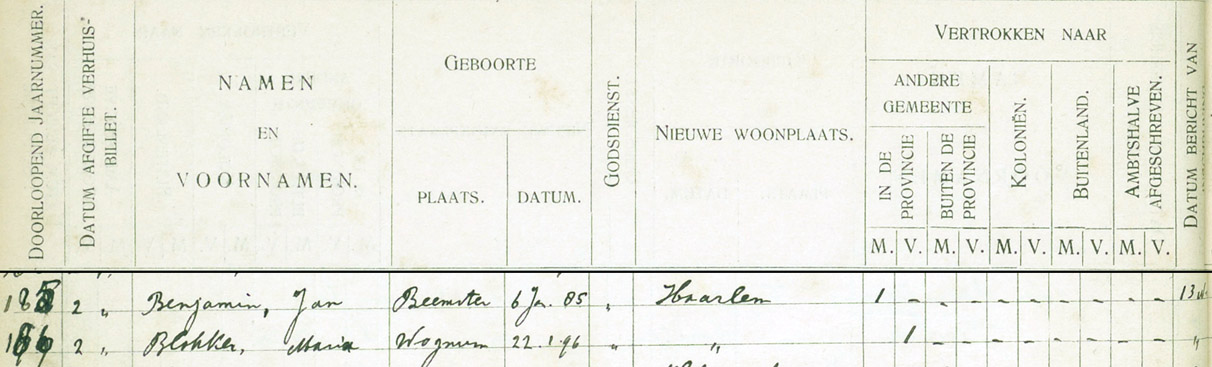 DOORLOOPEND JAARNUMMER.
DATUM AFGIFTE VERHUIS-
BILLET.
NAMEN
EN
VOORNAMEN.
GEBOORTE
PLAATS.
DATUM.
GODSDIENST.
NIEUWE WOONPLAATS.
VERTROKKEN NAAR
ANDERE
GEMEENTE
IN DE
PROVINCIE
BUITEN DE
PROVINCIE
KOLONIËN.
BUITENLAND.
AMBTSHALVE
AFGESCHREVEN.
DATUM BERICHT VAN
M. V. M. V. M. V. M. V. M. V.
2 „ Benjamin, Jan Beemster 6 Jan. 85 „ Haarlem 1 - - - - - - - - - 13
2 „ Blokker, Maria Wognum 22.1.96 „ „ 1 - - - - - - - - „